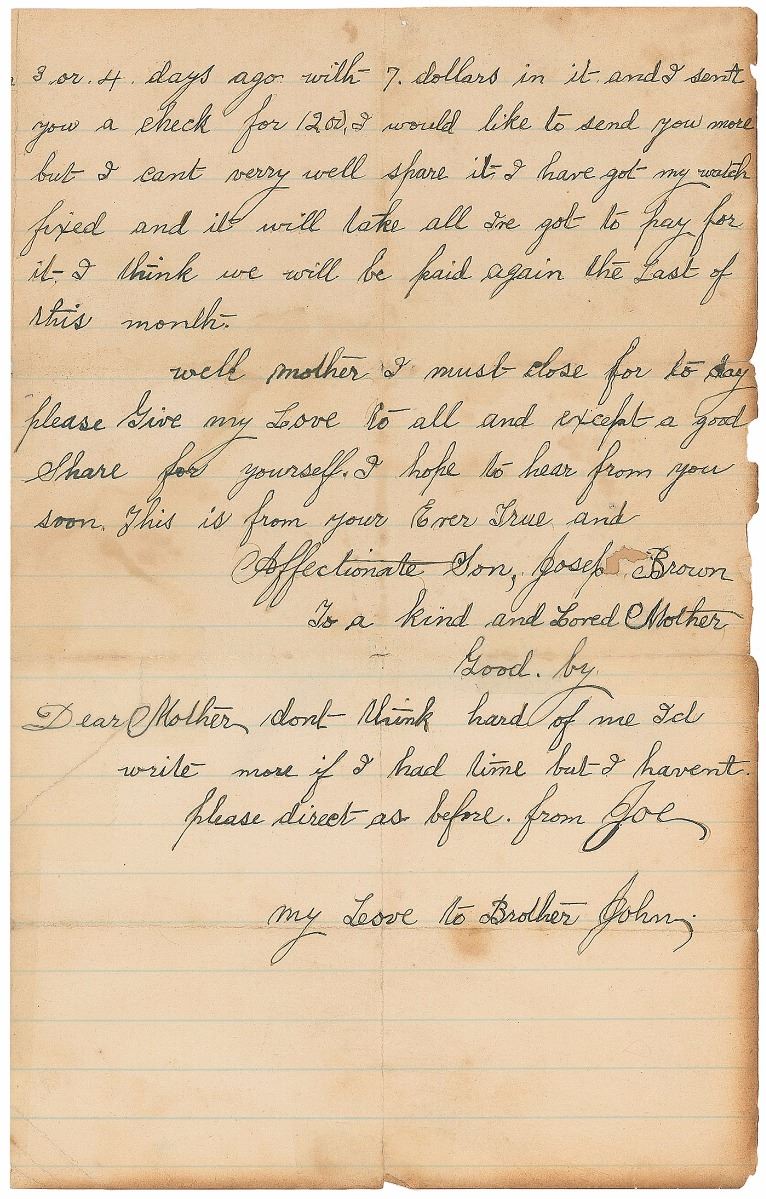 3 or. 4. days ago with 7. dollars in it and I sent
you a check for 1200, I would like to send you more
but I cant verry well spare it I have got my watch
fixed and it will take all Ive got to pay for
it. I think we will be paid again the Last of
this month.
well mother I must close for to day
please Give my Love to all and except a good
Share for yourself. I hope to hear from you
soon. This is from your Ever True and
Affectionate Son, Josep Brown
To a kind and Loved Mother
Good. by.
Dear Mother dont think hard of me Id
write more if I had time but I havent.
please direct as before. from Joe
my Love to Brother John.